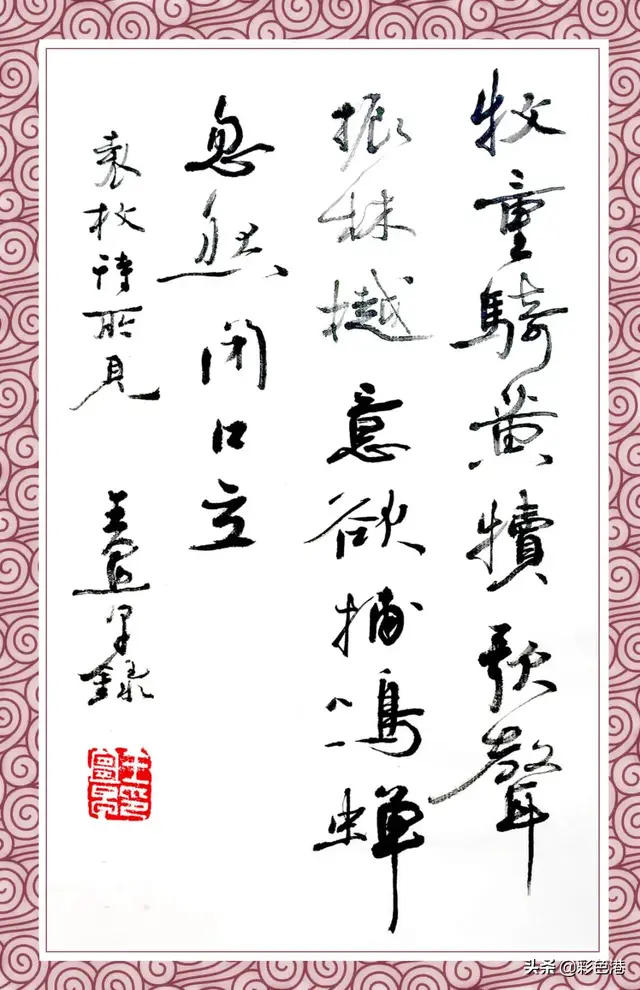 牧童騎黄犢歌聲
振林樾意欲捕鳴蟬
忽然閉口立
袁枚詩所見
王 錄
头条 @彩色港